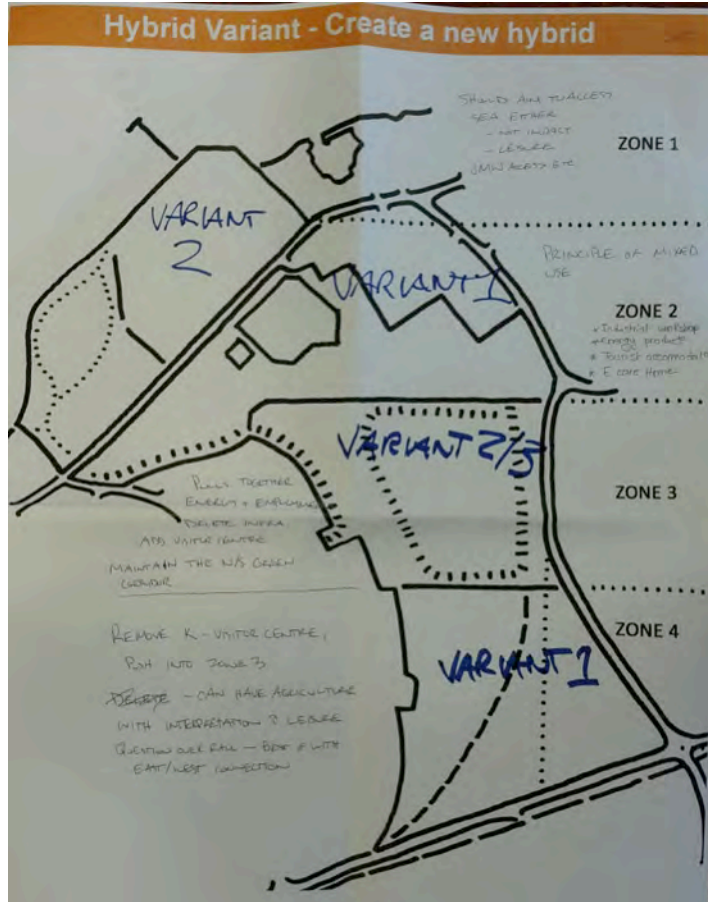 Hybrid Variant - Create a new hybrid
SHOULD AIM TO ACCESS
SEA EITHER
- NOT IMPACT
- LEISURE
ACCESS ETC
ZONE 1
VARIANT
2
VARIANT 1
PRINCIPLE OF MIXED
USE
ZONE 2
Industrial workshop
energy products
Tourist
E care Home
VARIANT 2/3
ZONE 3
PULLS TOGETHER
ENERGY + 
DELETE INFRA
ADD VISITOR CENTRE
MAINTAIN THE N/S GREEN
CORRIDOR
ZONE 4
VARIANT 1
REMOVE K - VISITOR CENTRE,
PUSH INTO ZONE 3
- CAN HAVE AGRICULTURE
WITH INTERPRETATION & LEISURE
QUESTION OVER RAIL - WITH
EAST/WEST CONNECTION